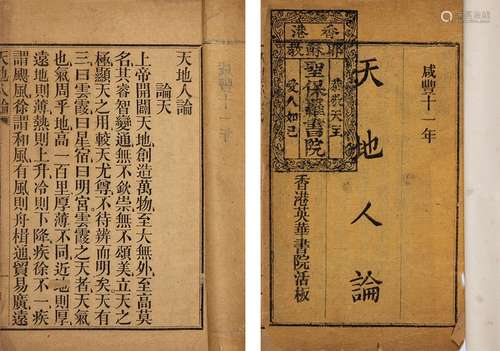 咸豐十一年
天地人論
香港
耶穌教
恭敬天主
聖保羅書院
愛人如己
香港英華書院活板
天地人論
論天
上帝開闢天地創造萬物至大無外至高莫
名其睿智變通無不欽崇無不頌美立天之
極顯天之用較天尤尊不待辨而明矣天有
三曰雲霞曰星宿曰明宮雲霞之天者天氣
也氣周乎地高一百里厚薄不同近地則厚
遠地則薄熱則上升冷則下降疾徐不一疾
謂颶風徐謂和風有風則舟楫通貿易廣遠
天地人論